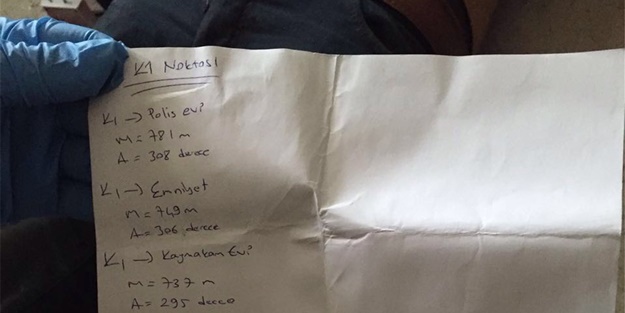 K1 Noktası
K1 → Polis evi
M = 781 m
A = 308 derece
K1 → Emniyet
M = 749 m
A = 306 derece
K1 → Kaymakam Evi
M = 737 m
A = 295 derece